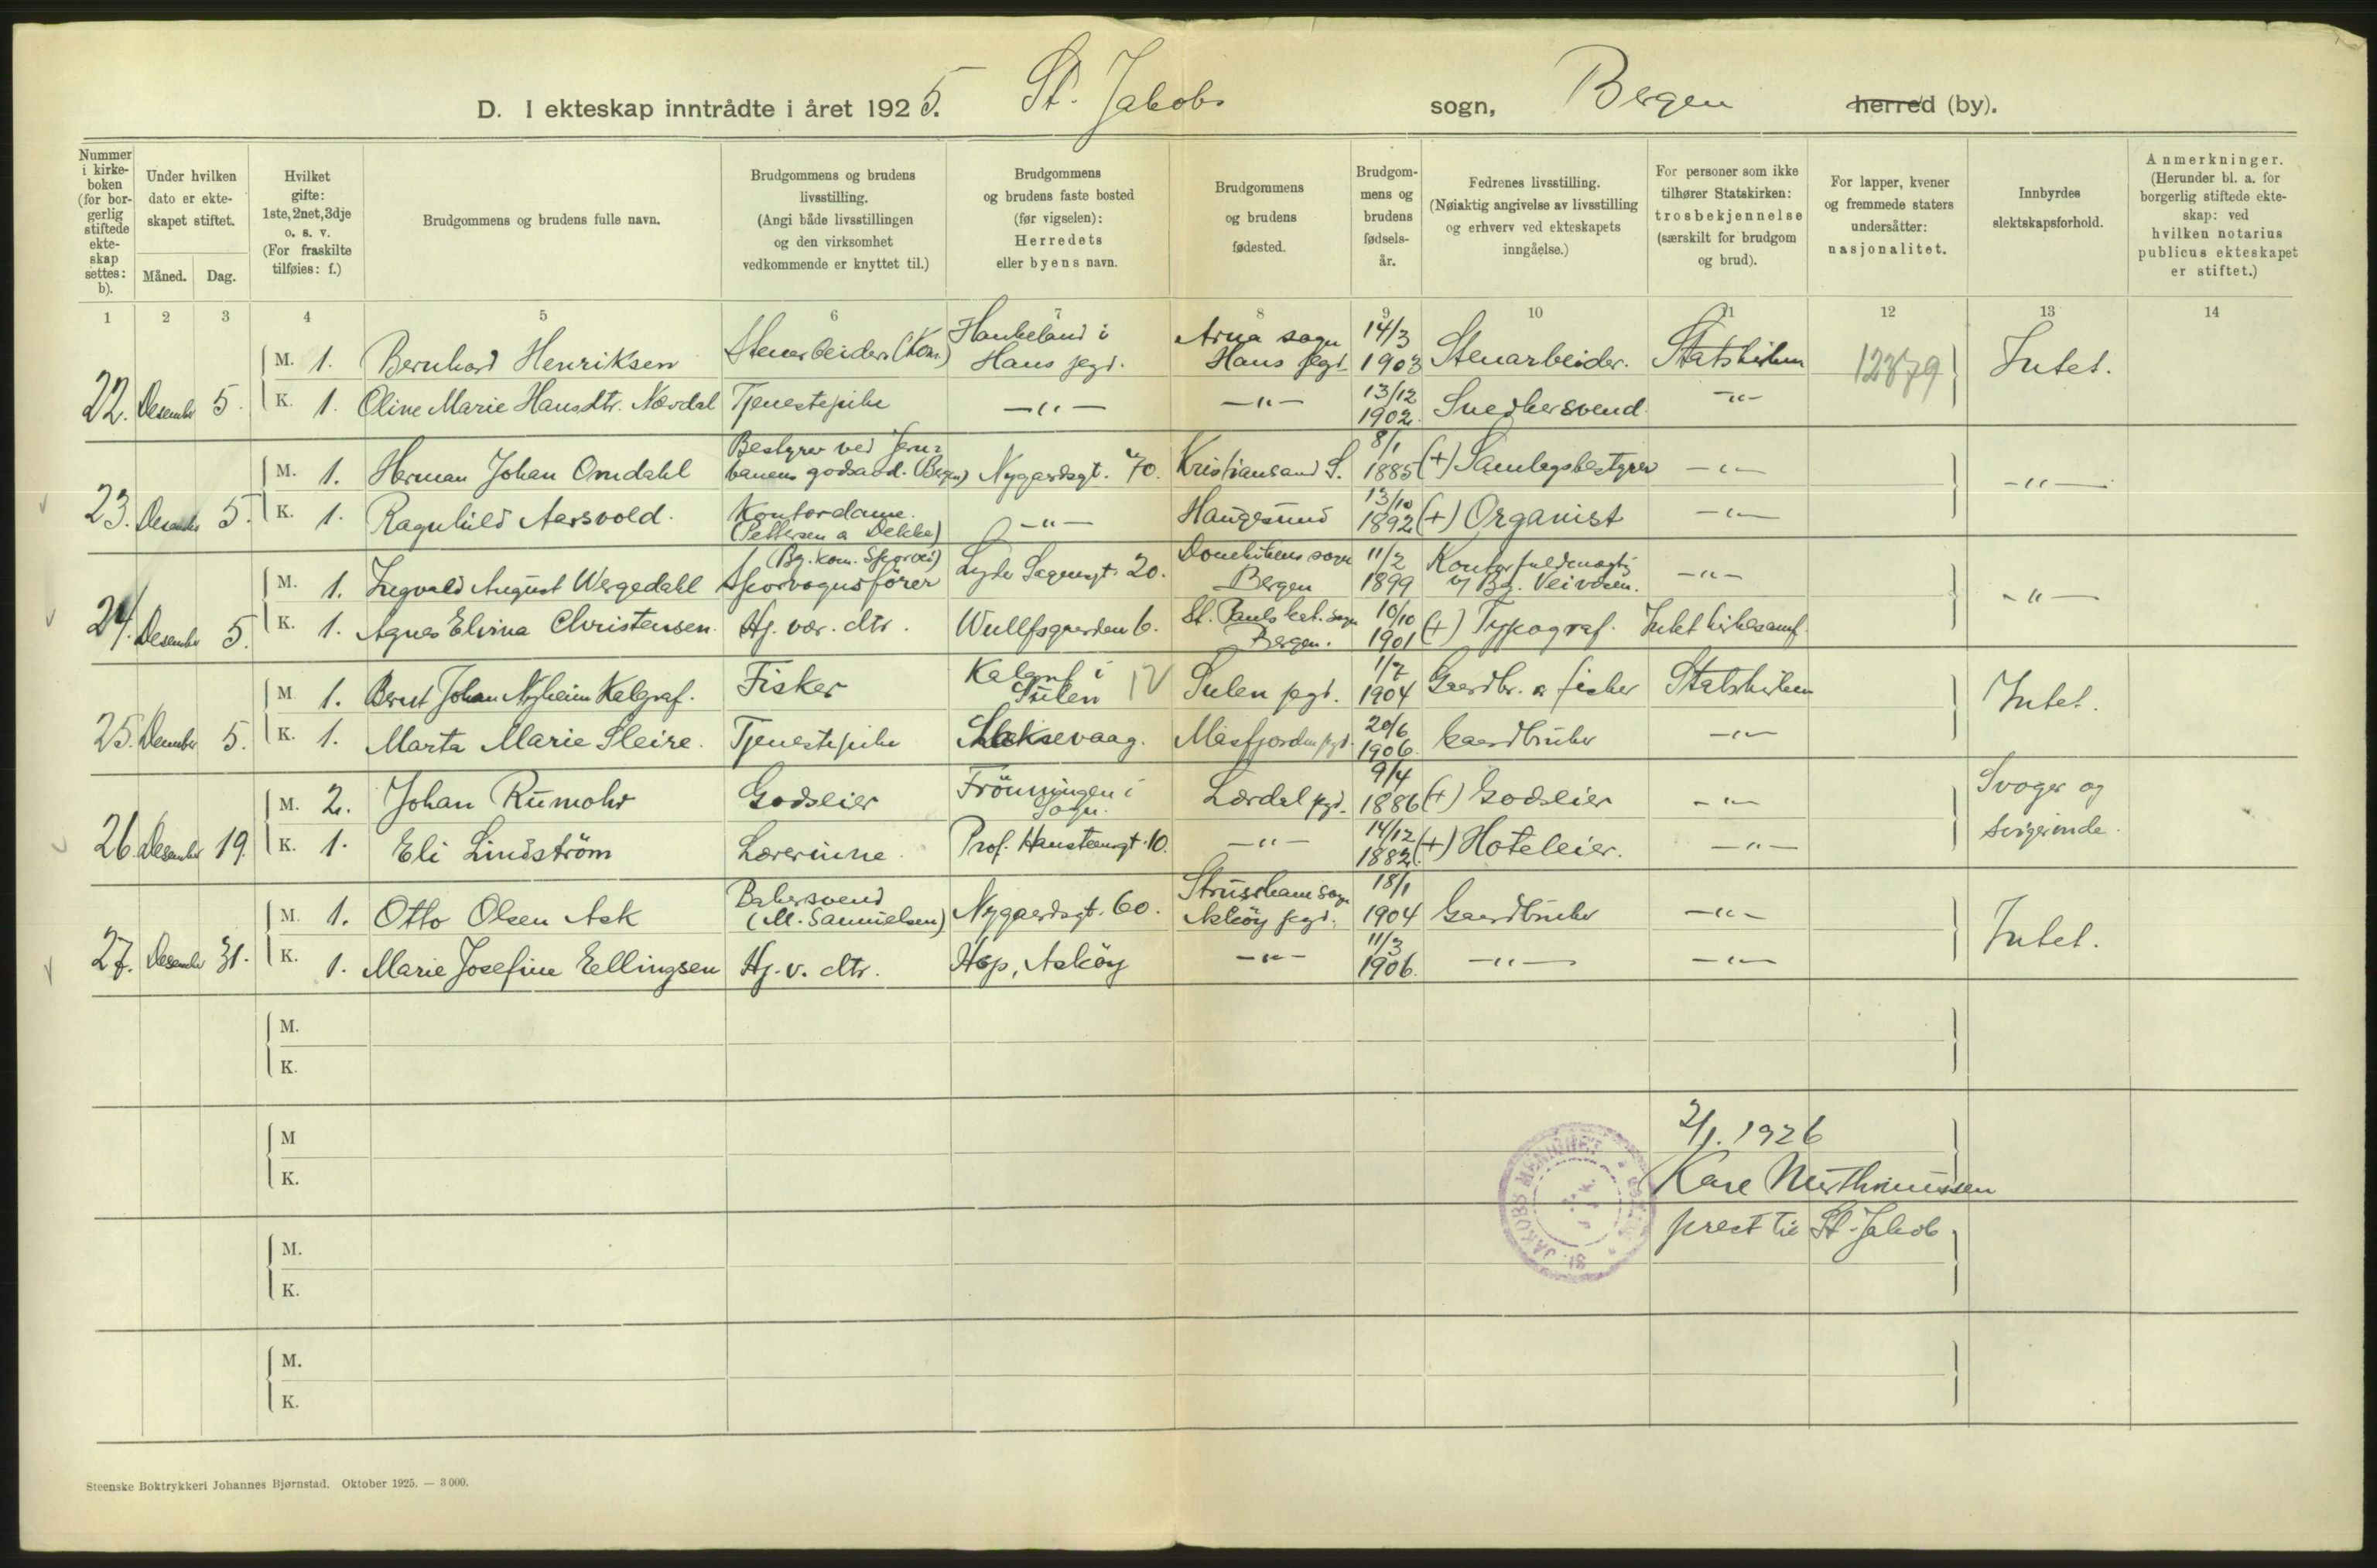 D. I ekteskap inntrådte i året 1925. St. Jakobs sogn, Bergen herred (by).
Nummer i kirkeboken (for borgerlig stiftede ekteskap settes: b).
Under hvilken dato er ekteskapet stiftet.
Måned. Dag.
Hvilket gifte: 1ste, 2net, 3dje o. s. v. (For fraskilte tilføies: f.)
Brudgommens og brudens fulle navn.
Brudgommens og brudens livsstilling. (Angi både livsstillingen og den virksomhet vedkommende er knyttet til.)
Brudgommens og brudens faste bosted (før vigselen): Herredets eller byens navn.
Brudgommens og brudens fødested.
Brudgommens og brudens fødselsår.
Fedrenes livsstilling. (Nøiaktig angivelse av livsstilling og erhverv ved ekteskapets inngåelse.)
For personer som ikke tilhører Statskirken: trosbekjennelse (særskilt for brudgom og brud).
For lapper, kvener og fremmede staters undersåtter: nasjonalitet.
Innbyrdes slektskapsforhold.
Anmerkninger. (Herunder bl. a. for borgerlig stiftede ekteskap: ved hvilken notarius publicus ekteskapet er stiftet.)
1 2 3 4 5 6 7 8 9 10 11 12 13 14
22. Desember 5. M. 1. Bernhard Henriksen Stenarbeider (Kom.) Haukeland i Haus pgd. Arna sogn Haus pgd. 14/3 1903 Stenarbeider. Statskirken 12379 Intet.
K. 1. Oline Marie Hansdtr. Nævdal Tjenestepike —"— —"— 13/12 1902. Snedkersvend —"—
23. Desember 5. M. 1. Herman Johan Omdahl Bestyrer ved Jernbanens godsavd. (Bergen) Nygaardsgt. 70. Kristiansand S. 8/1 1885 (+) Samlagsbestyrer —"— —"—
K. 1. Ragnhild Aarsvold. Kontordame. (Pettersen & Dekke) —"— Haugesund 13/10 1892 (+) Organist —"—
24. Desember 5. M. 1. Ingvald August Wergedahl (Bg. kom. Sporvei) Sporvognsfører Lyder Sagensgt. 20. Domkirkens sogn Bergen 11/2 1899 Kontorfuldmægtig v/ Bg. Veivæsen. —"— —"—
K. 1. Agnes Elvina Christensen. Hj. vær. dtr. Wullfsgaarden 6. St. Pauls kat. sogn Bergen. 10/10 1901 (+) Typograf. Intet kirkesamf.
25. Desember 5. M 1. Bernt Johan Nyheim Kalgraf. Fisker Kalgraf i Sulen IV Sulen pgd. 1/7 1904 Gaardbr. & fisker Statskirken Intet.
K. 1. Marta Marie Sleire. Tjenestepike Laksevaag. Masfjorden pgd. 20/6 1906. Gaardbruker —"—
26. Desember 19. M. 2. Johan Rumohr Godseier Frönningen i Sogn. Lærdal pgd. 9/4 1886 (+) Godseier —"— Svoger og svigerinde.
K. 1. Eli Lindström Lærerinne. Prof. Hansteensgt. 10. —"— 14/12 1882. (+) Hoteleier. —"—
27. Desember 31. M. 1. Otto Olsen Ask Bakersvend (M. Samuelsen) Nygaardsgt. 60. Strusshamn sogn Askøy pgd. 18/1 1904 Gaardbruker —"— Intet.
K. 1. Marie Josefine Eellingsen Hj. v. dtr. Hop, Askøy —"— 11/3 1906. —"— —"—
M.
K.
M
K.
M.
K.
M.
K.
2/1. 1926
prest til St. Jakob
ST. JAKOBS MENIGHET
Steenske Boktrykkeri Johannes Bjørnstad. Oktober 1925. — 3 000.